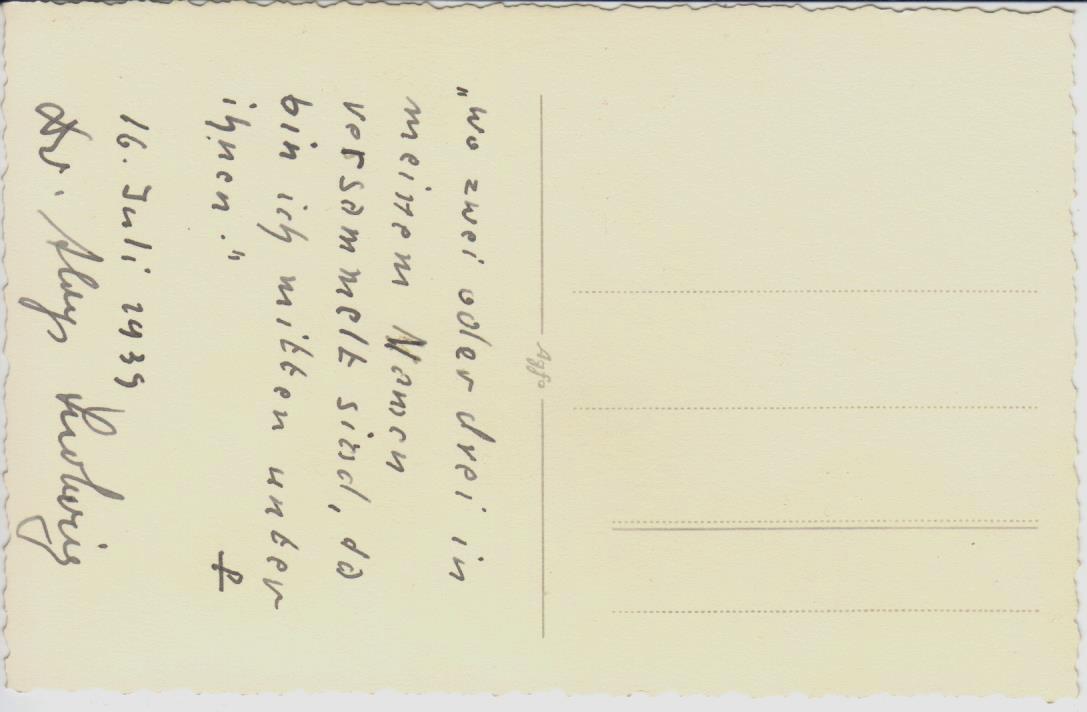 „wo zwei oder drei in
meinem Namen
versammelt sind, da
bin ich mitten unter
ihnen."
16. Juli 1939
Dr. Aloys Ludwig
Agfa